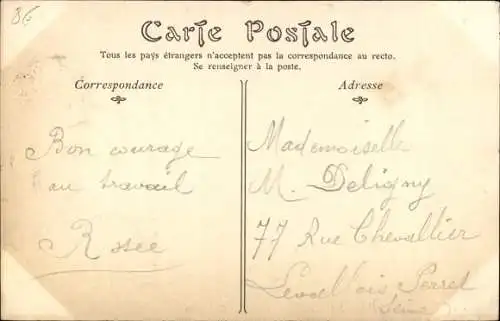 86
Carte Postale
Tous les pays étrangers n'acceptent pas la correspondance au recto.
Se renseigner à la poste.
Correspondance
Bon courage
au travail
Adresse
Mademoiselle
M. Deligny
77 Rue Chevallier
Levallois Perret
Seine